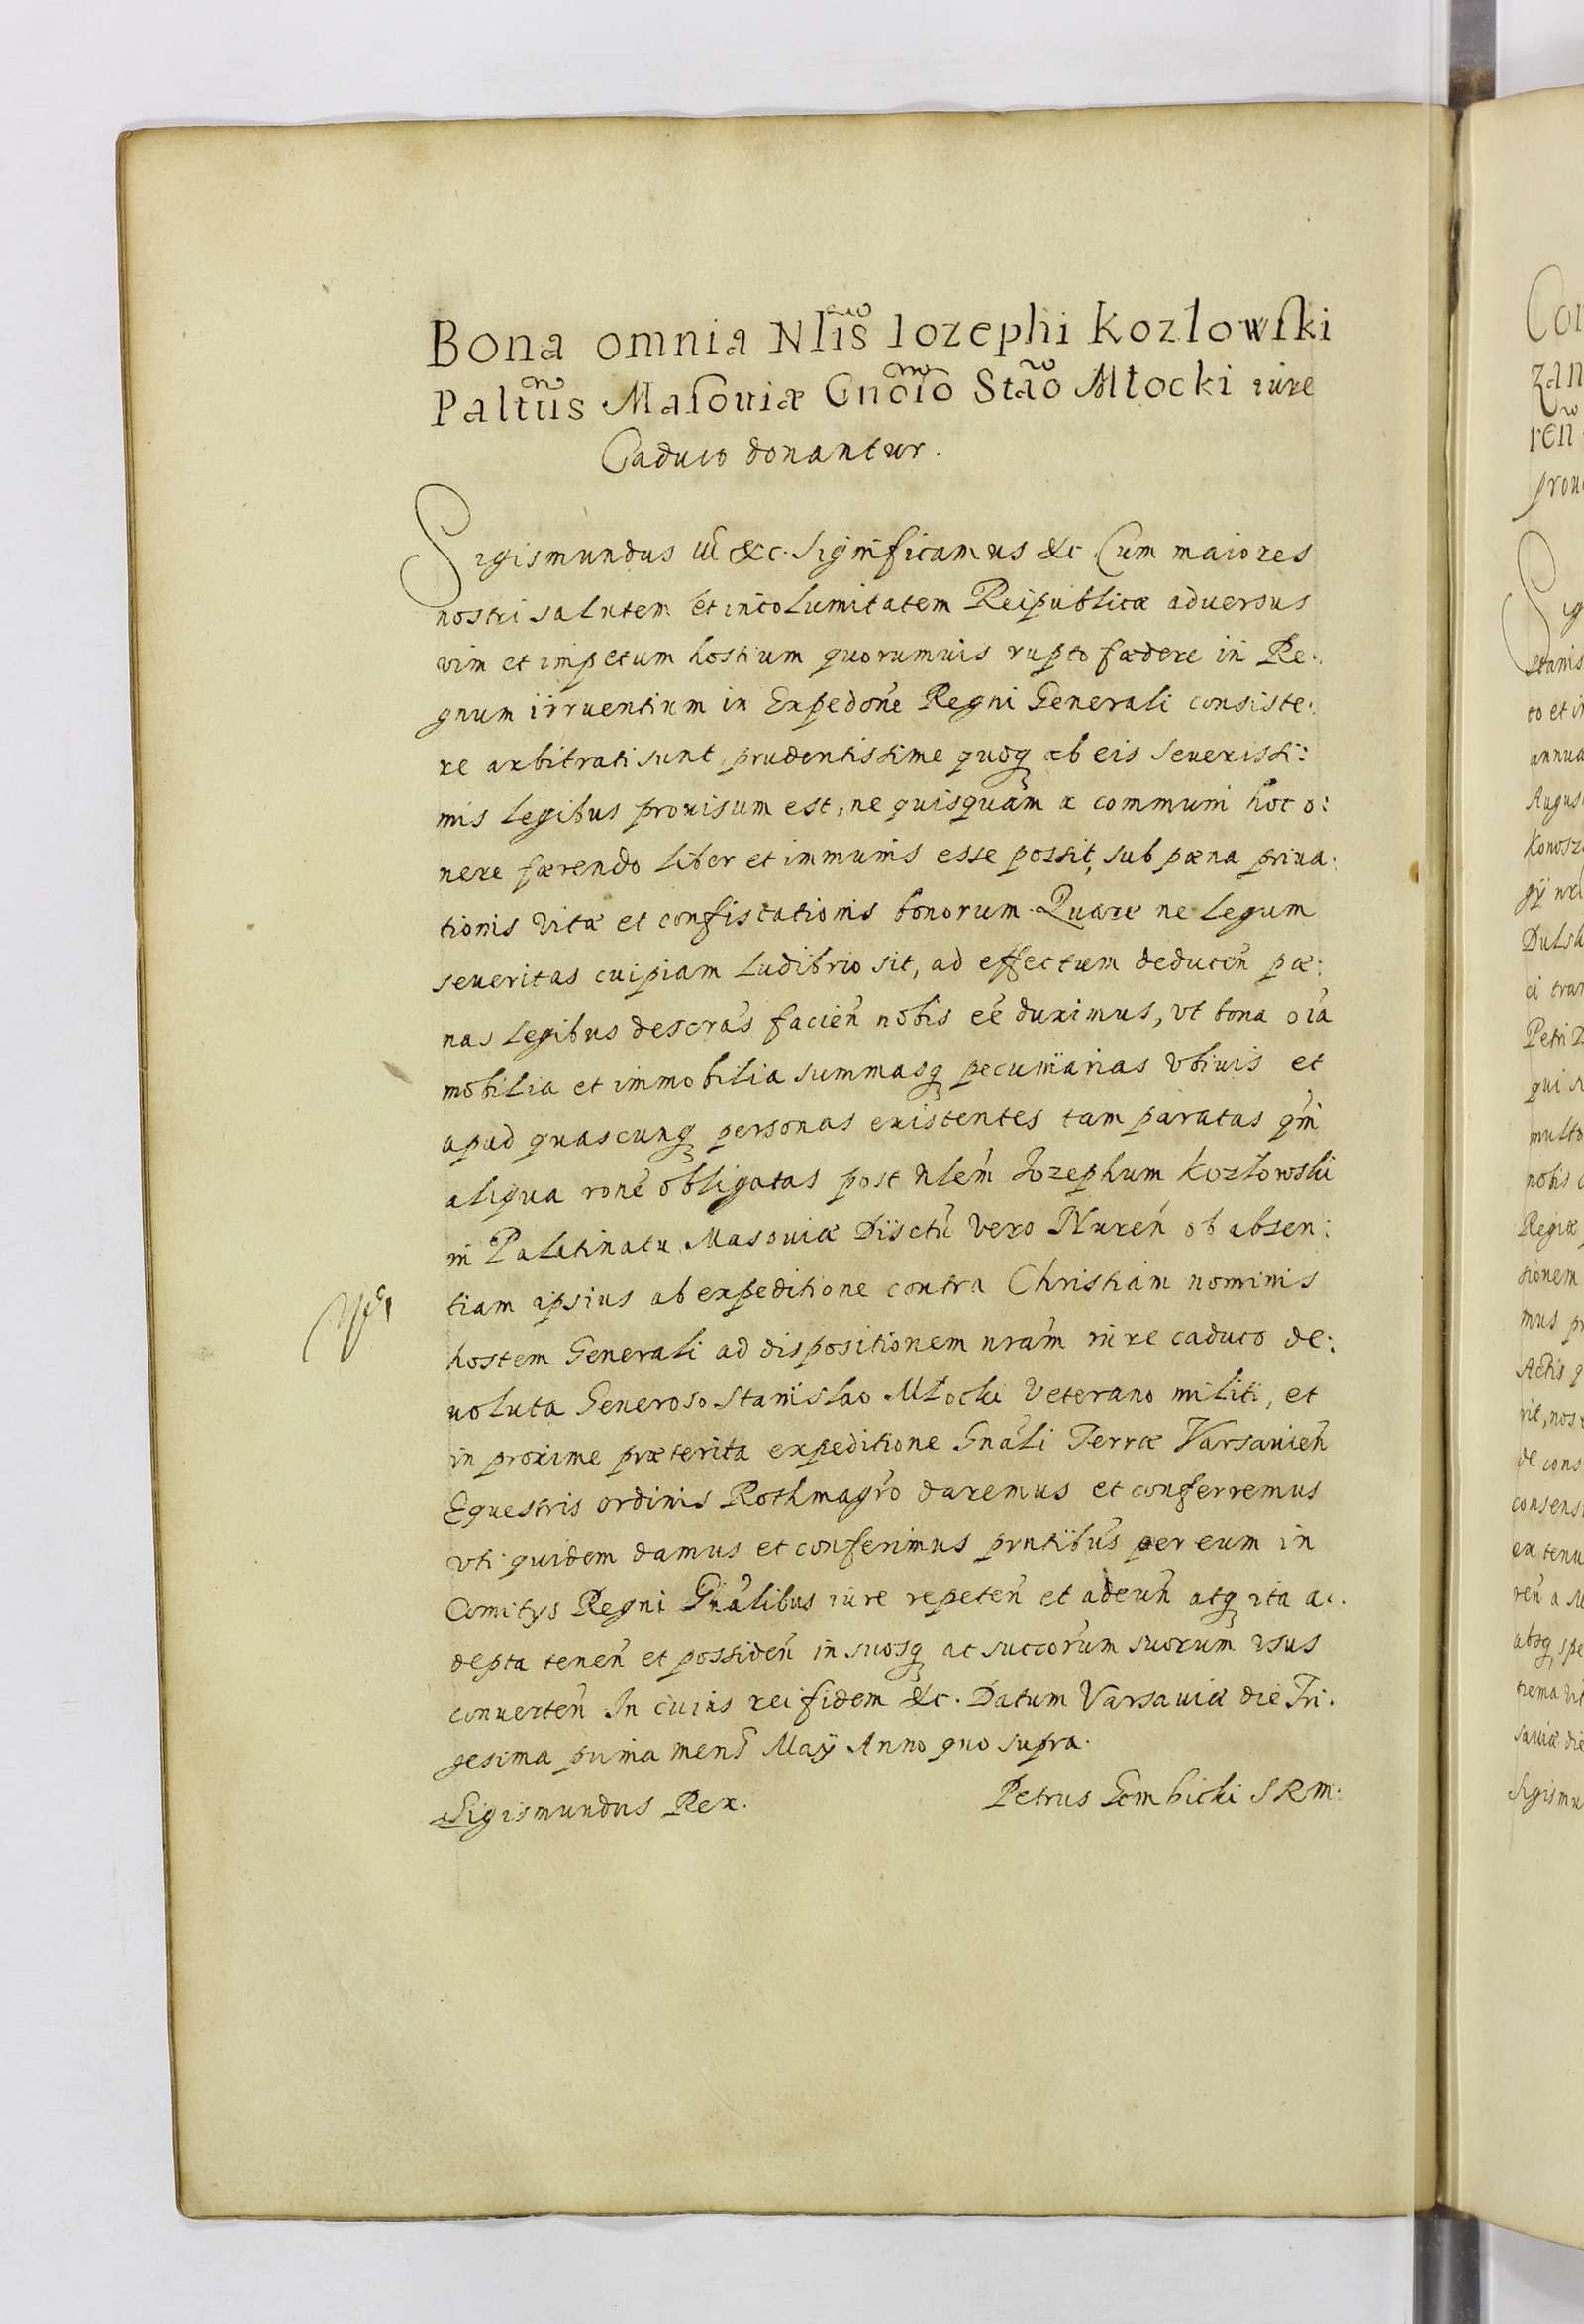 Bona omnia Nlis̃ Iozephi Kozlowſki
Paltũs Maſouiæ Gnõſo Stão Młocki iure
Caduco donantur.
Sigismundus III &c. Significamus &c Cum maiores
nostri salutem et incolumitatem Reipublicæ aduersus
vim et impetum hostium quorumuis rupto fædere in Re:
gnum irruentium in Expedone Regni Generali consiste:
re arbitrati sunt prudentissime quoq ab eis seuerissi:
mis legibus prouisum est, ne quisquam a communi hoc o:
nere færendo liber et immunis esse possit, sub pæna priua:
tionis vitæ et confiscationis bonorum. Quare ne legum
seueritas cuipiam ludibrio sit, ad effectum deducen̄ pæ:
nas legibus descrãs facien̄ nobis eē duximus, vt bona oīa
mobilia et immobilia summasq pecuniarias vbiuis et
apud quascunq personas existentes tam paratas qm̄
aliqua rone obligatas post nlem̄ Iozephum Kozłowski
in Palatinatu Masouiæ Disctu vero Nuren̄ ob absen:
tiam ipsius ab expeditione contra Christiam nominis
hostem Generali ad dispositionem nram̄ iure caduco de:
uoluta Generoso Stanislao Młocki veterano militi, et
in proxime præterita expeditione Gnãli Terræ Varsauien̄
Equestris ordinis Rothmagrõ daremus et conferremus
vti quidem damus et conferimus prntibus per eum in
Comitys Regni Gnãlibus iure repeten̄ et adeun̄ atq ita a:
depta tenen̄ et possiden̄ in suosq ac succorum suorum vsus
conuerten̄ In cuius rei fidem &c. Datum Varsauiæ die Tri:
gesima prima mens̄ Maÿ Anno quo supra.
Sigismundus Rex. Petrus Gembicki SRM: